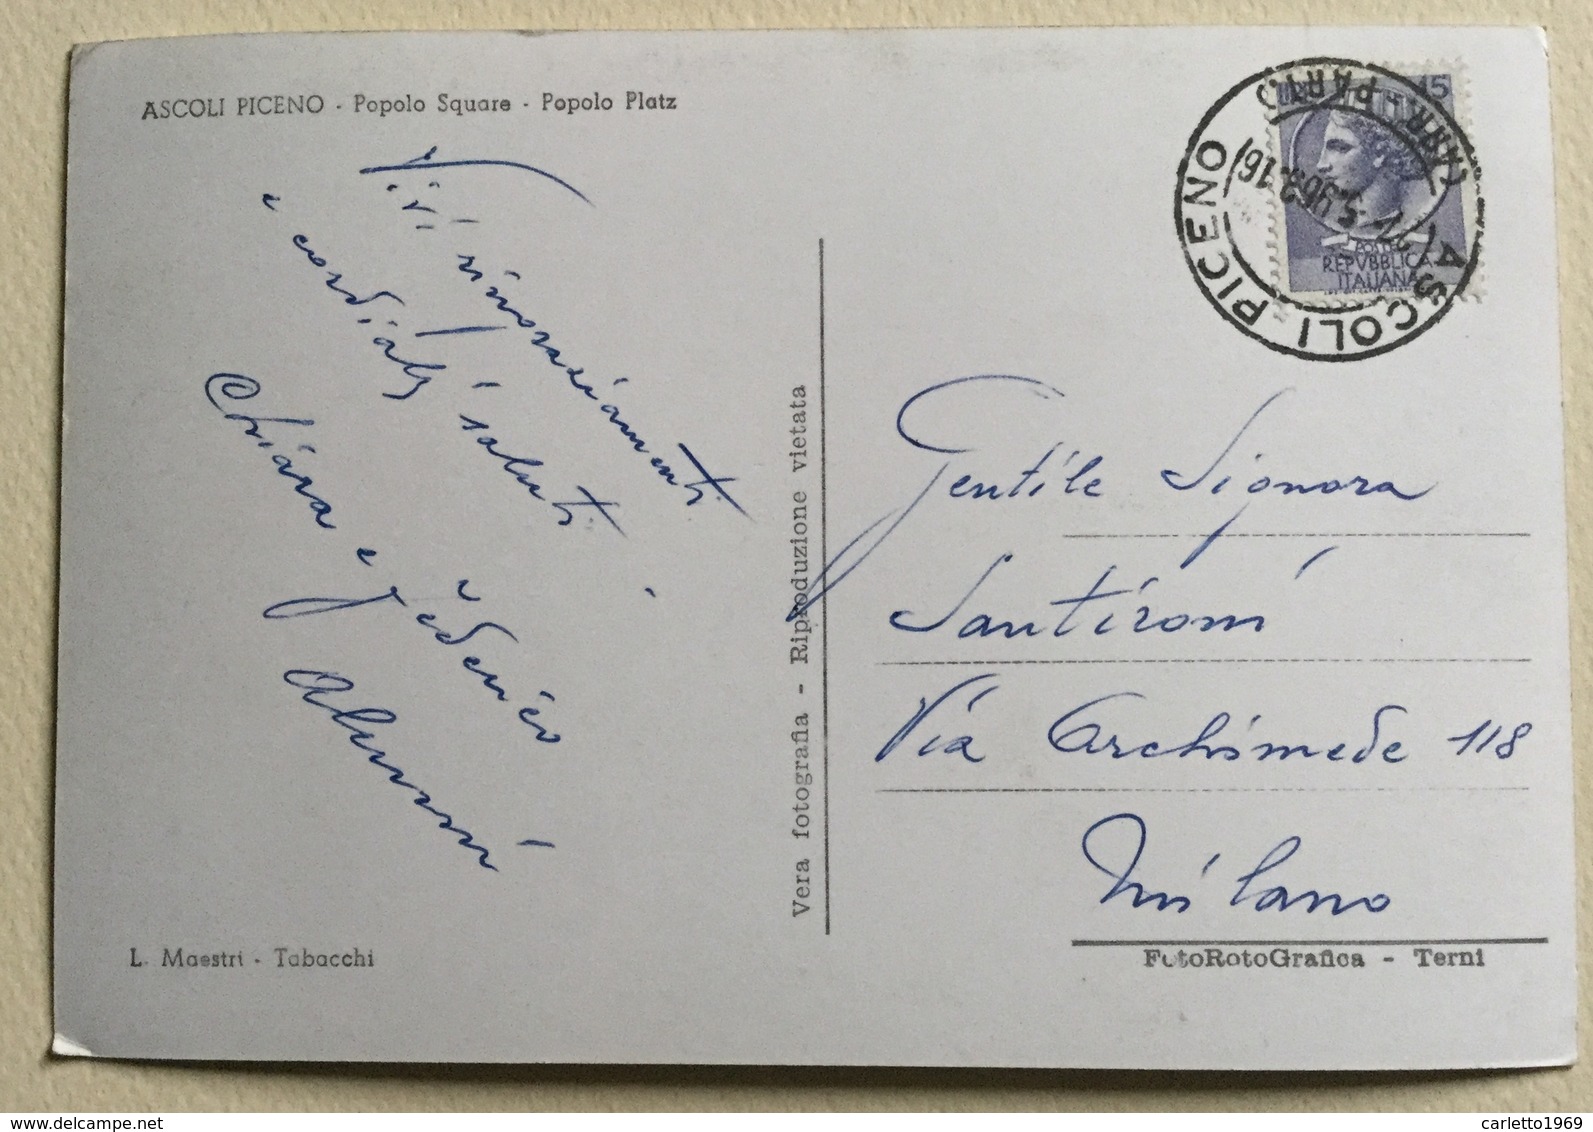 ASCOLI PICENO - Popolo Square - Popolo Platz
Vivi ringraziamenti
e cordiali saluti
Chiara e Federico
L. Maestri - Tabacchi
Vera fotografia - Riproduzione vietata
ASCOLI PICENO
(ARR. PART.)
15
POSTE
REPVBBLICA
ITALIANA
Gentile Signora
Santironi
Via Archimede 118
Milano
FotoRotoGrafica - Terni
www.delcampe.net
carletto1969